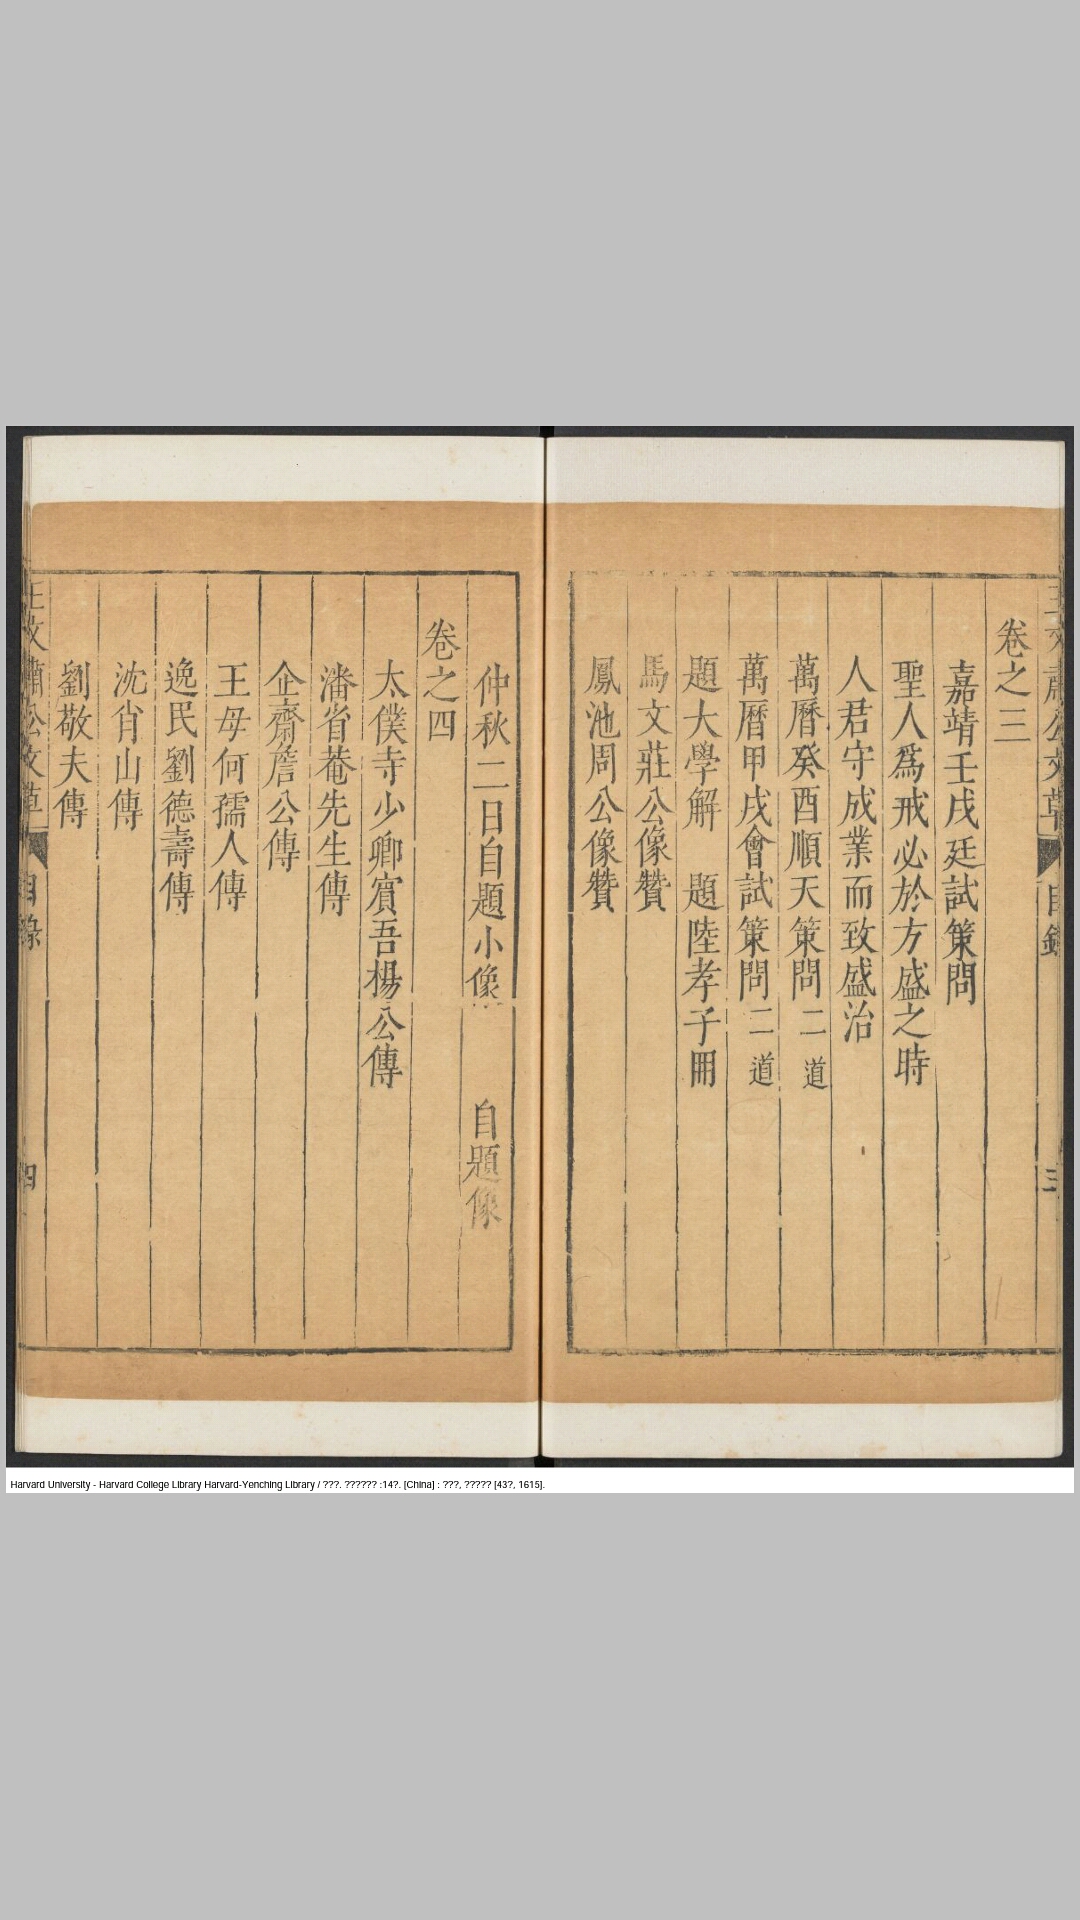 卷之三
嘉靖壬戌廷試策問
聖人為戒必於方盛之時
人君守成業而致盛治
萬曆癸酉順天策問二道
萬曆甲戌會試策問二道
題大學解 題陸孝子冊
馬文莊公像贊
鳳池周公像贊
仲秋二日自題小像 自題像
卷之四
太僕寺少卿賔吾楊公傳
潘省菴先生傳
企齋詹公傳
王母何孺人傳
逸民劉德壽傳
沈肖山傳
劉敬夫傳
王文肅公文草 目錄 四
Harvard University - Harvard College Library Harvard-Yenching Library / ???. ?????? :14?. [China] : ???, ????? [43?, 1615].